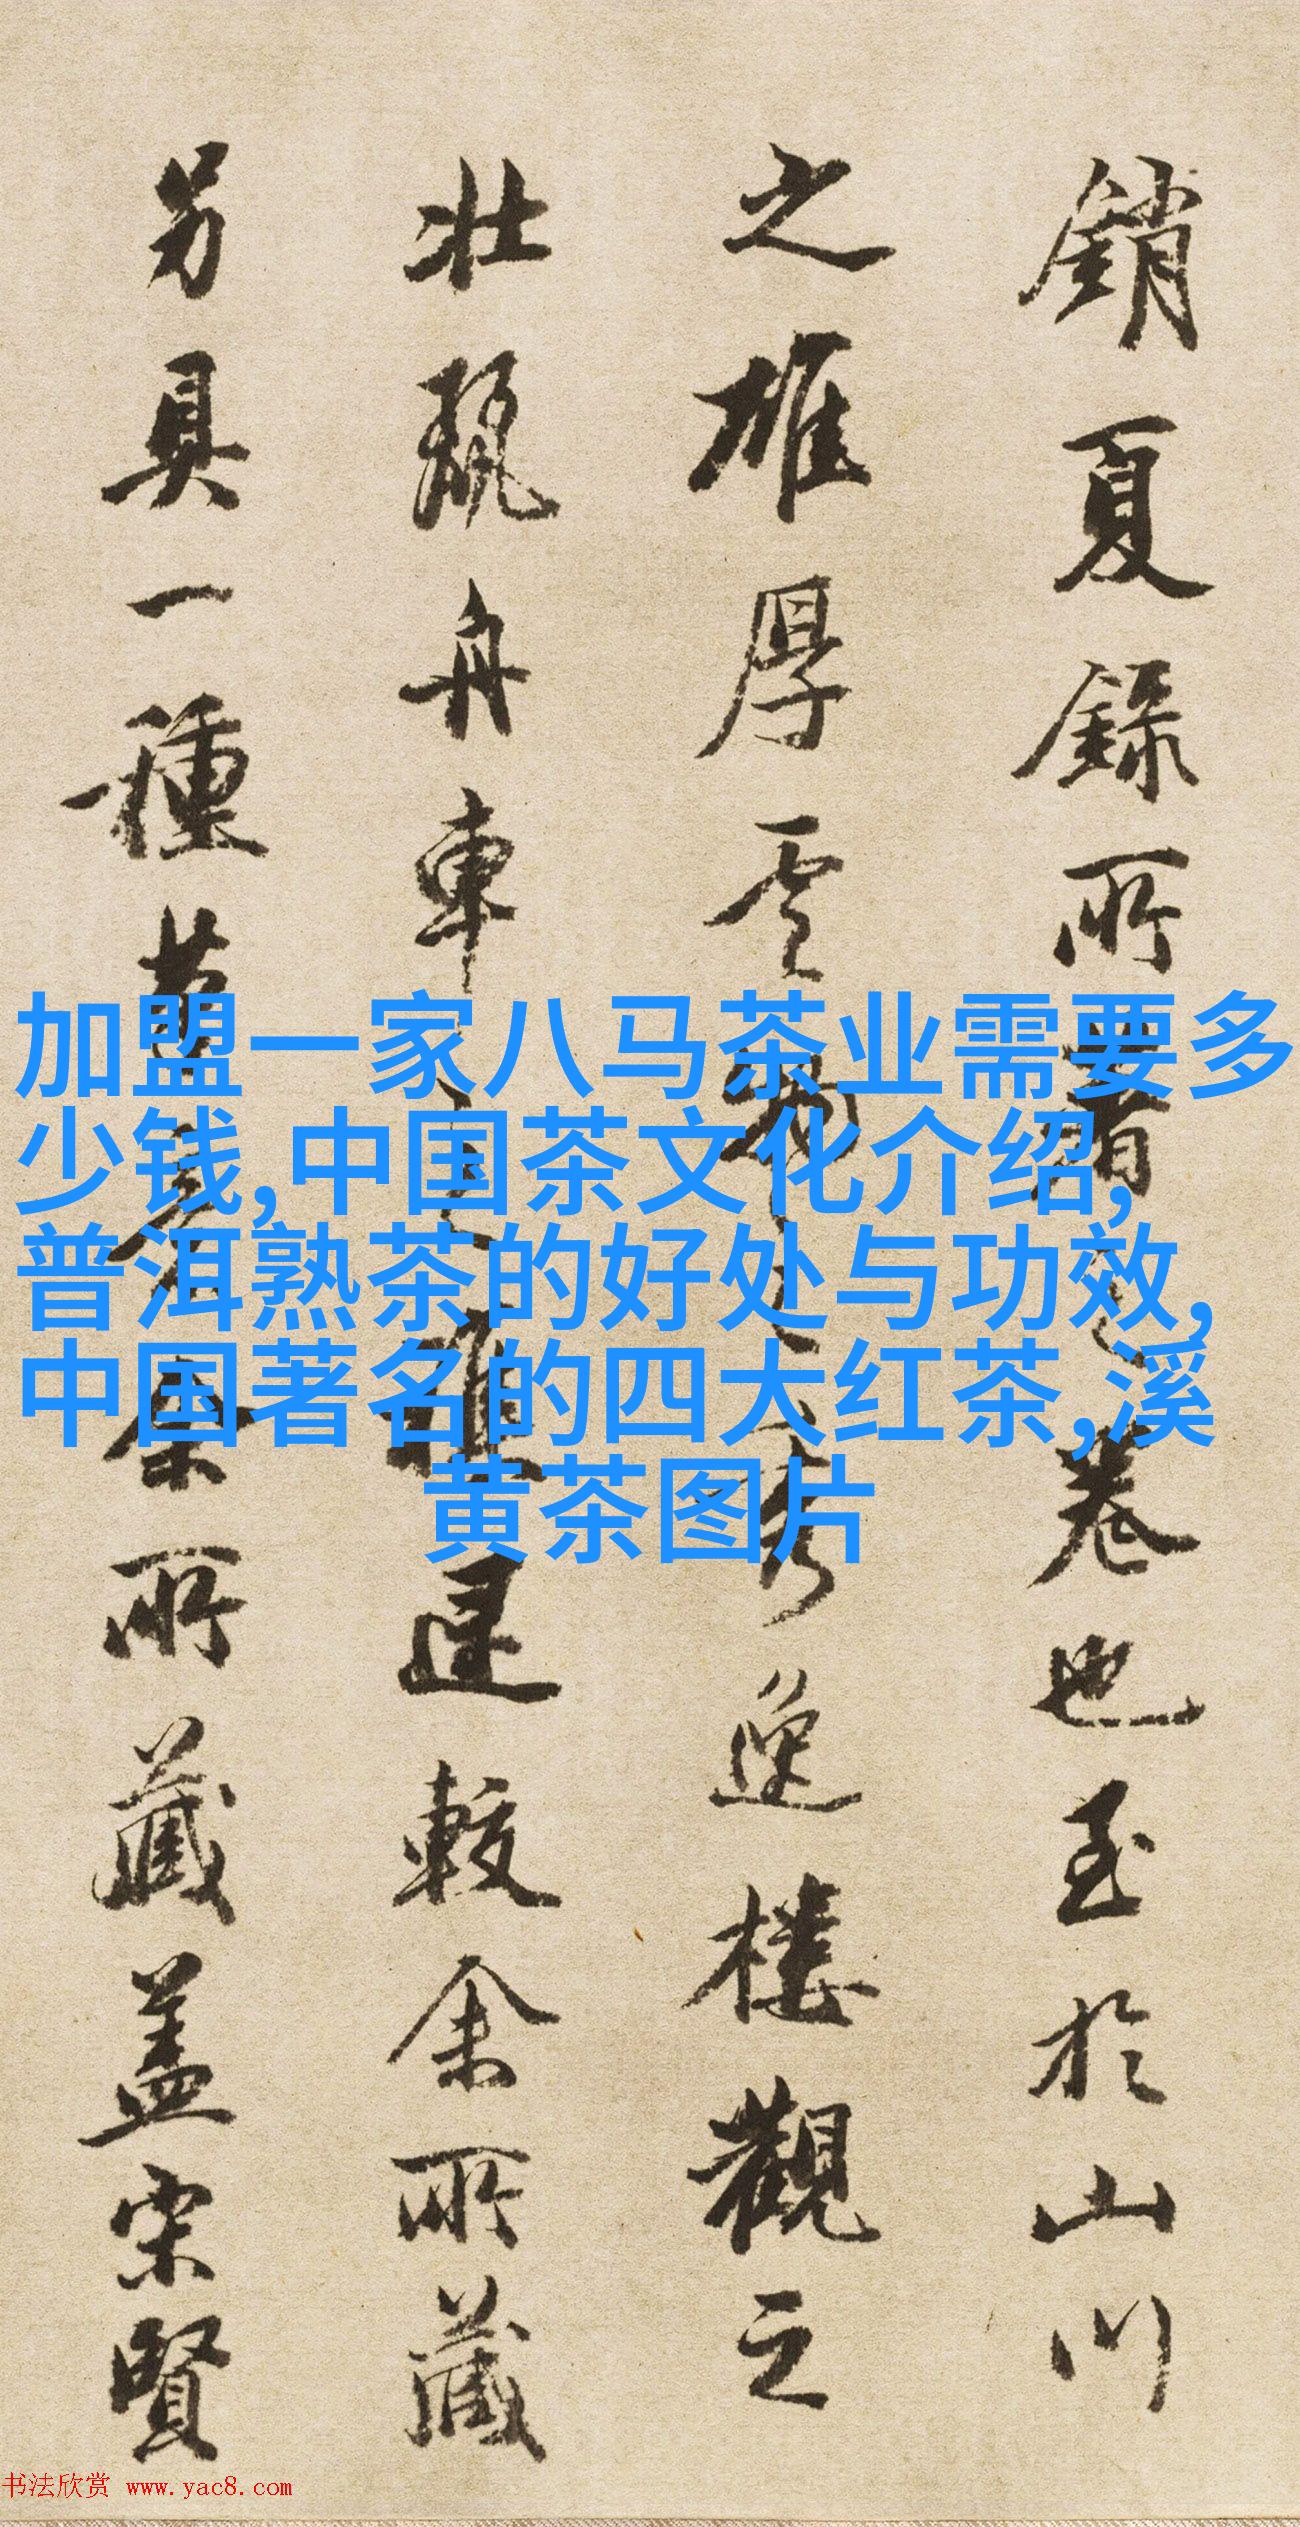 銷夏録所著之卷也至於山川
之雄厚雲物之秀逸樓觀之
壯麗舟車之雖還較余所藏
另具一種墓多余所藏蓋宋賢
加盟一家八马茶业需要多
少钱,中国茶文化介绍,
普洱熟茶的好处与功效,
中国著名的四大红茶,溪
黄茶图片
书法欣赏 www.yac8.com